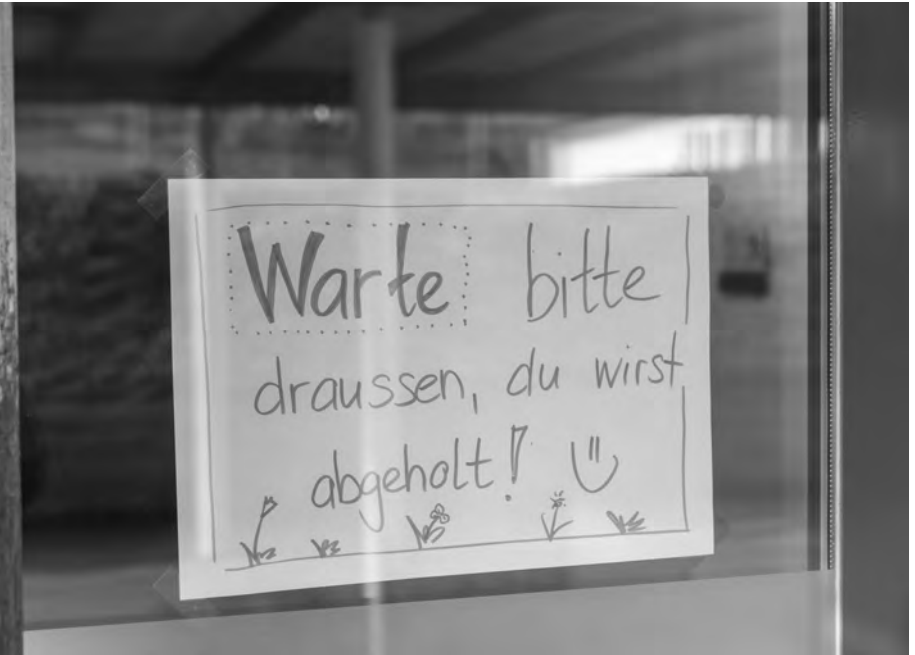 Warte bitte
draussen, du wirst
abgeholt!